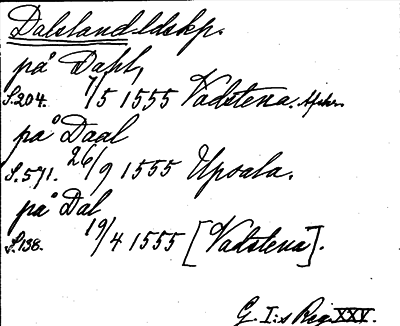 Dalsland ldskp.
på Dahl,
S. 204. 7/5 1555 Vadstena. Afskr.
på Daal
S. 571. 26/9 1555 Upsala.
på Dal
S. 138. 19/4 1555 [Vadstena].
G. I:s Reg. XXV.